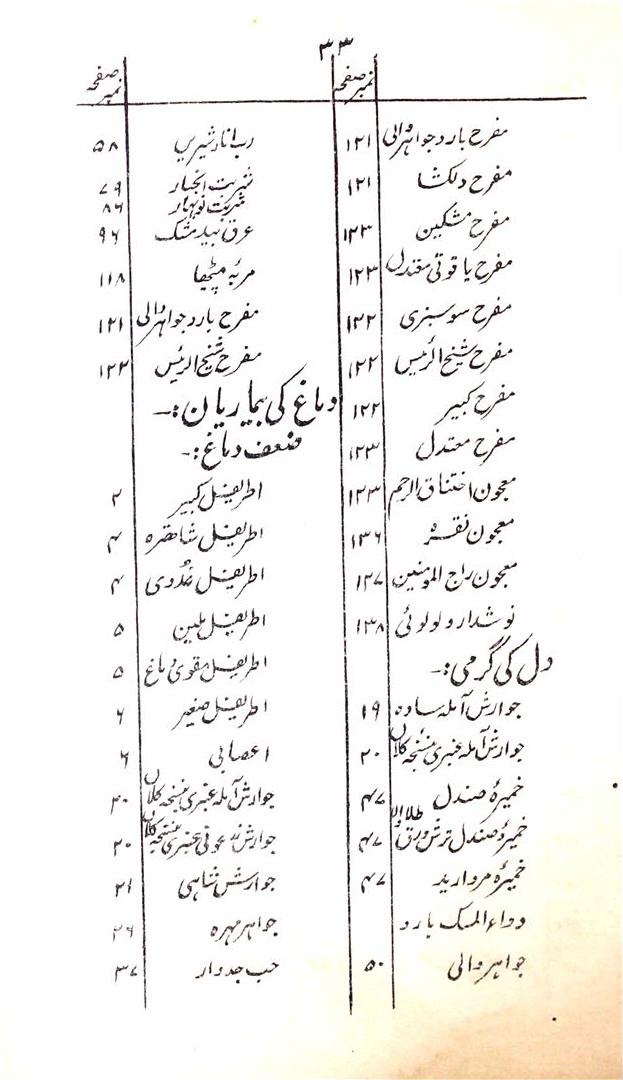 ۳۳
نمبر صفحہ
مفرح بارد جواہر والی ۱۲۱
مفرح دلکشا ۱۲۱
مفرح مشکین ۱۲۳
مفرح یاقوتی معتدل ۱۲۳
مفرح سوسنبری ۱۲۲
مفرح شیخ الرئیس ۱۲۲
مفرح کبیر ۱۲۲
مفرح معتدل ۱۲۳
معجون اختناق الرحم ۱۲۳
معجون نقرہ ۱۳۶
معجون راج المومنین ۱۳۷
نوشدارو لولوئی ۱۳۸
دل کی گرمی:۔
جوارش آملہ سادہ ۱۹
جوارش آملہ عنبری بنسخہ کلاں ۲۰
خمیرہ صندل ۴۷
خمیرہ صندل ترش ورق طلا والا ۴۷
خمیرہ مروارید ۴۷
دواء المسک بارد
جواہر والی ۵۰
نمبر صفحہ
رب انار شیریں ۵۸
شربت انجبار ۷۹
شربت نوبہار ۸۶
عرق بیدمشک ۹۶
مربہ میٹھا ۱۱۸
مفرح بارد جواہر والی ۱۲۱
مفرح شیخ الرئیس ۱۲۲
دماغ کی بیماریاں:۔
ضعف دماغ:۔
اطریفل کبیر ۲
اطریفل شاہترہ ۴
اطریفل غددی ۴
اطریفل ملین ۵
اطریفل مقوی دماغ ۵
اطریفل صغیر ۶
اعصابی ۶
جوارش آملہ عنبری بنسخہ کلاں ۲۰
جوارش زرعونی عنبری بنسخہ کلاں ۲۰
جوارش شاہی ۲۱
جواہر مہرہ ۲۶
حب جدوار ۳۷